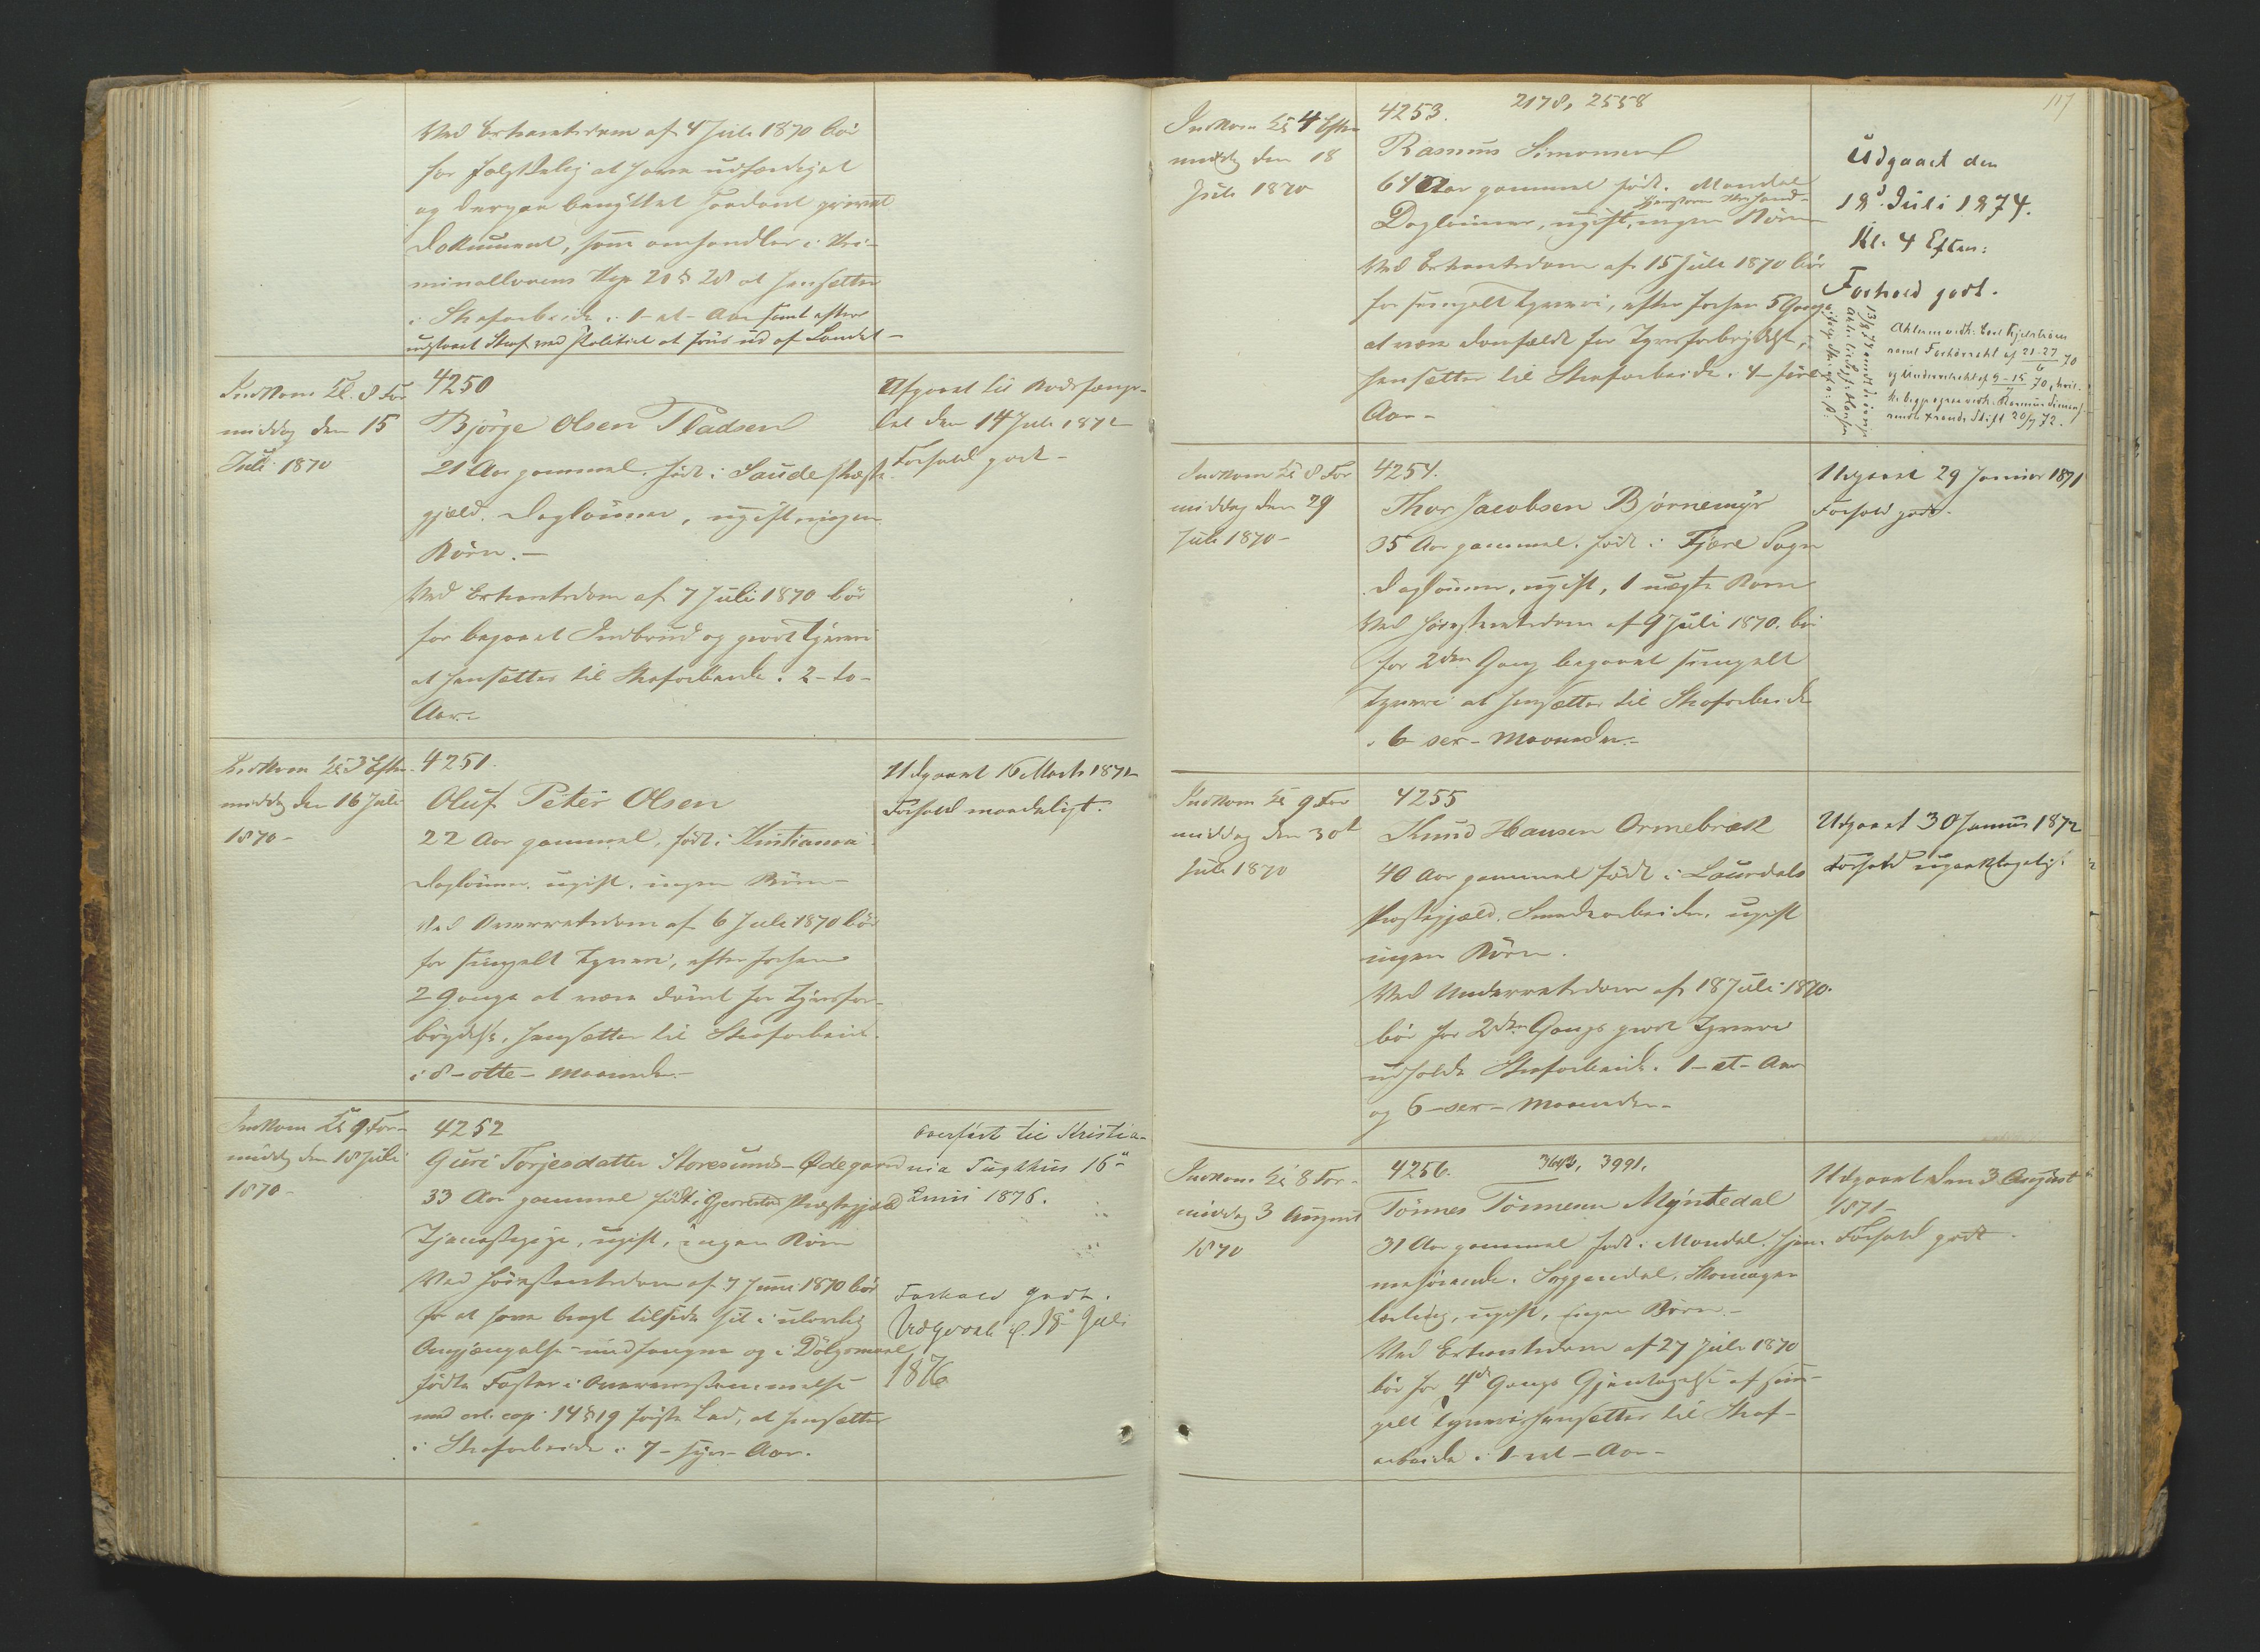 Ved Extraretsdom af 4 Juli 1870 bör
for falskelig at have udfærdiget
og dernæst benyttet saadant privat
Dokument, som omhandler i Kri-
minallovens Kap 20 § 28 at hensættes
i Strafarbeide i 1 - et - Aar samt efter
udstaaet Straf ved Politiet at före ud af Landet -
Indkom Kl. 8 For
middag den 15
Juli 1870
4250
Björge Olsen Pladsen
21 Aar gammel. født i Saude Præste
gjæld. Daglönner, ugift, ingen
Börn. -
Ved Extraretsdom af 7 Juli 1870 bör
for begaaet Indbrud og grovt Tyveri
at hensættes til Strafarbeide i 2 - to -
Aar. -
Afgaaet til Bodsfængs-
let den 14 Juli 1872
Forhold godt -
Indkom Kl 3 Efter-
middag den 16 Juli
1870 -
4251.
Oluf Peter Olsen
22 Aar gammel, født i Kristiania
Daglönner, ugift, ingen Börn -
Ved Overretsdom af 6 Juli 1870 bör
for simpelt Tyveri, efter forhen
2 Gange at være dömt for Tyvsfor-
brydelse, hensættes til Strafarbeide
i 8 - otte - Maaneder. -
Udgaaet 16 Marts 1871
Forhold maadeligt.
Indkom Kl 9 For-
middag den 18 Juli
1870 -
4252
Guri Torjesdatter Storesunds-Ødegaard
33 Aar gammel født i Gjerrestad Præstegjæld
Tjenestepige, ugift, ingen Börn
Ved Höiesteretsdom af 7 Juni 1870 bör
for at have bragt tilside sit i ulovlig
Omgjængelse undfangne og i Dölgsmaal
födte Foster i Overensstemmelse
med crl. cap. 14 § 19 förste Led, at hensættes
i Strafarbeide i 7 - syv - Aar.
Overfört til Kristia-
nia Tugthus 16de
Juni 1876.
Forhold godt.
Udgaaet d. 18 Juli
1876
117
Indkom Kl 4 Efter-
middag den 18
Juli 1870
4253. 2178, 2558
Rasmus Simonsen
64 Aar gammel født i Mandal
hjemstavn Kr.sand -
Daglönner, ugift, ingen Börn
Ved Extraretsdom af 15 Juli 1870 bör
for simpelt Tyveri, efter forhen 5 Gange
at være domfældt for Tyvsforbrydelse,
hensættes til Strafarbeide i 4 - fire -
Aar -
Udgaaet den
18d. Juli 1874.
Kl. 4 Efterm:
Forhold godt.
Indkom Kl 8 For
middag den 29
Juli 1870 -
4254.
Thor Jacobsen Bjørnemyr
35 Aar gammel. født i Fjære Sogn
Daglönner, ugift, 1 uægte Barn
Ved Höiesteretsdom af 9 Juli 1870. bör
for 2den Gang begaaet simpelt
Tyveri at hensættes til Strafarbeide
i 6 sex - Maaneder. -
Udgaaet 29 Januar 1871
Forhold godt.
Indkom Kl 9 For
middag den 30t
Juli 1870
4255
Knud Hansen Ormebræk
40 Aar gammel født i Laurdals
Præstegjæld. Smedearbeider, ugift
ingen Börn.
Ved Underretsdom af 18 Juli 1870.
bör for 2den Gangs grovt Tyveri
udholde Strafarbeide i 1 - et - Aar
og 6 - sex - Maaneder -
Udgaaet 30 Januar 1872
Forhold upaaklageligt.
Indkom Kl 8 For-
middag 3 August
1870
4256. 3643, 3991.
Tönnes Tönnesen Myntedal
31 Aar gammel født i Mandal, hjem-
mehörende i Soggendal. Skomager
lærling, ugift, ingen Börn. -
Ved Extraretsdom af 27 Juli 1870
bör for 4de Gangs Gjentagelse af sim-
pelt Tyveri hensættes til Straf-
arbeide i 1 - et - Aar -
Udgaaet den 3 August
1871 -
Forhold godt.